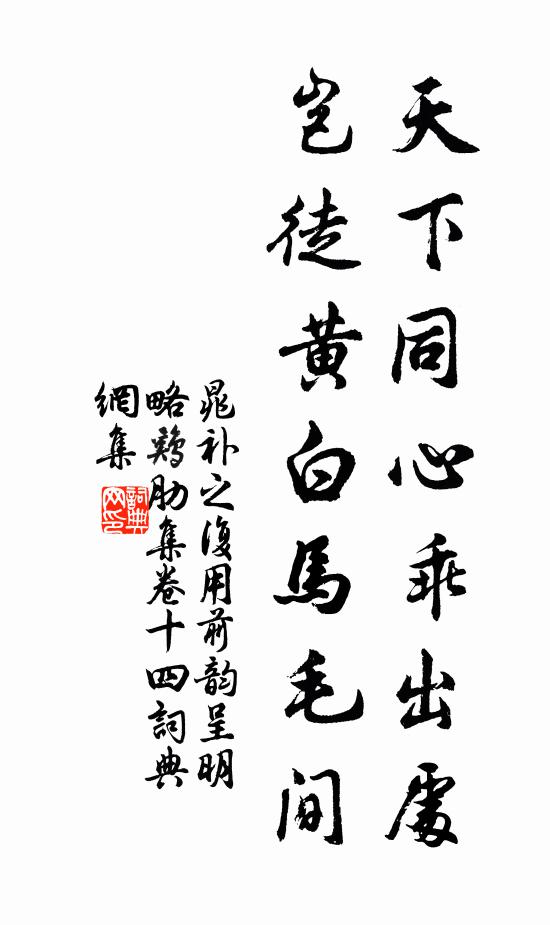 天下同心乖出處
豈徒黄白馬毛間
晁补之復用前韵呈明
略鷄肋集卷十四詞典
網集
詞典
网印